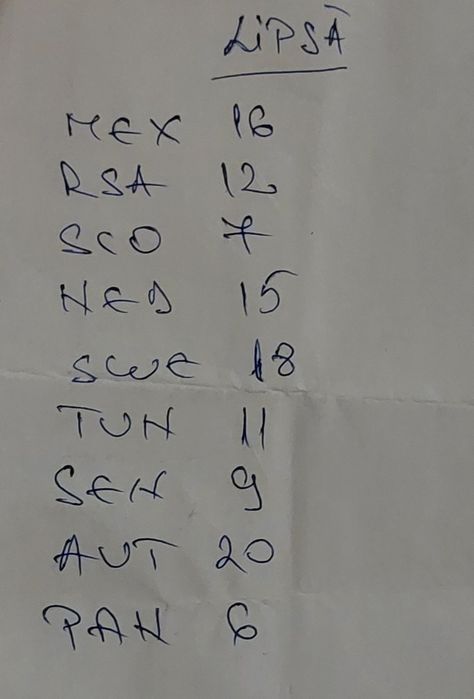 LIPSĂ
MEX 16
RSA 12
SCO 7
NED 15
SWE 18
TUN 11
SEN 9
AUT 20
PAN 6